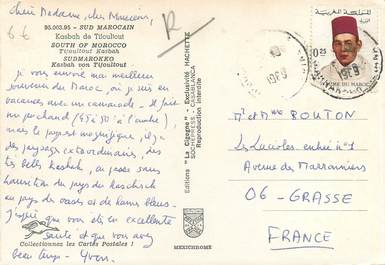 Chère Madame, cher Monsieur,
6 €
R
95.003.95 - SUD MAROCAIN
Kasbah de Tifoultout
SOUTH OF MOROCCO
Tifoultout Kasbah
SUDMAROKKO
Kasbah von Tifoultout
je vous envoie mon meilleur
souvenir du Maroc, où je suis en
vacances avec un camarade. Il fait
un peu chaud (45 à 50 à l'ombre),
mais le pays est magnifique, il y a
des paysages extraordinaires, des
très belles kasbah, on passe sans
transition du pays du
au pays des oasis et de
J'espère que vous êtes en excellente
santé et que vous avez
beau temps - Yvon.
Collectionnez les Cartes Postales !
Editions "La Cigogne" - Exclusivité HACHETTE
SOCHEPRESS - CASABLANCA
Reproduction interdite
MEXICHROME
المملكة المغربية
0.25
ROYAUME DU MAROC
Mr et Mme BOUTON
Les Lucioles entrée n°1
Avenue des Marronniers
06 - GRASSE
FRANCE